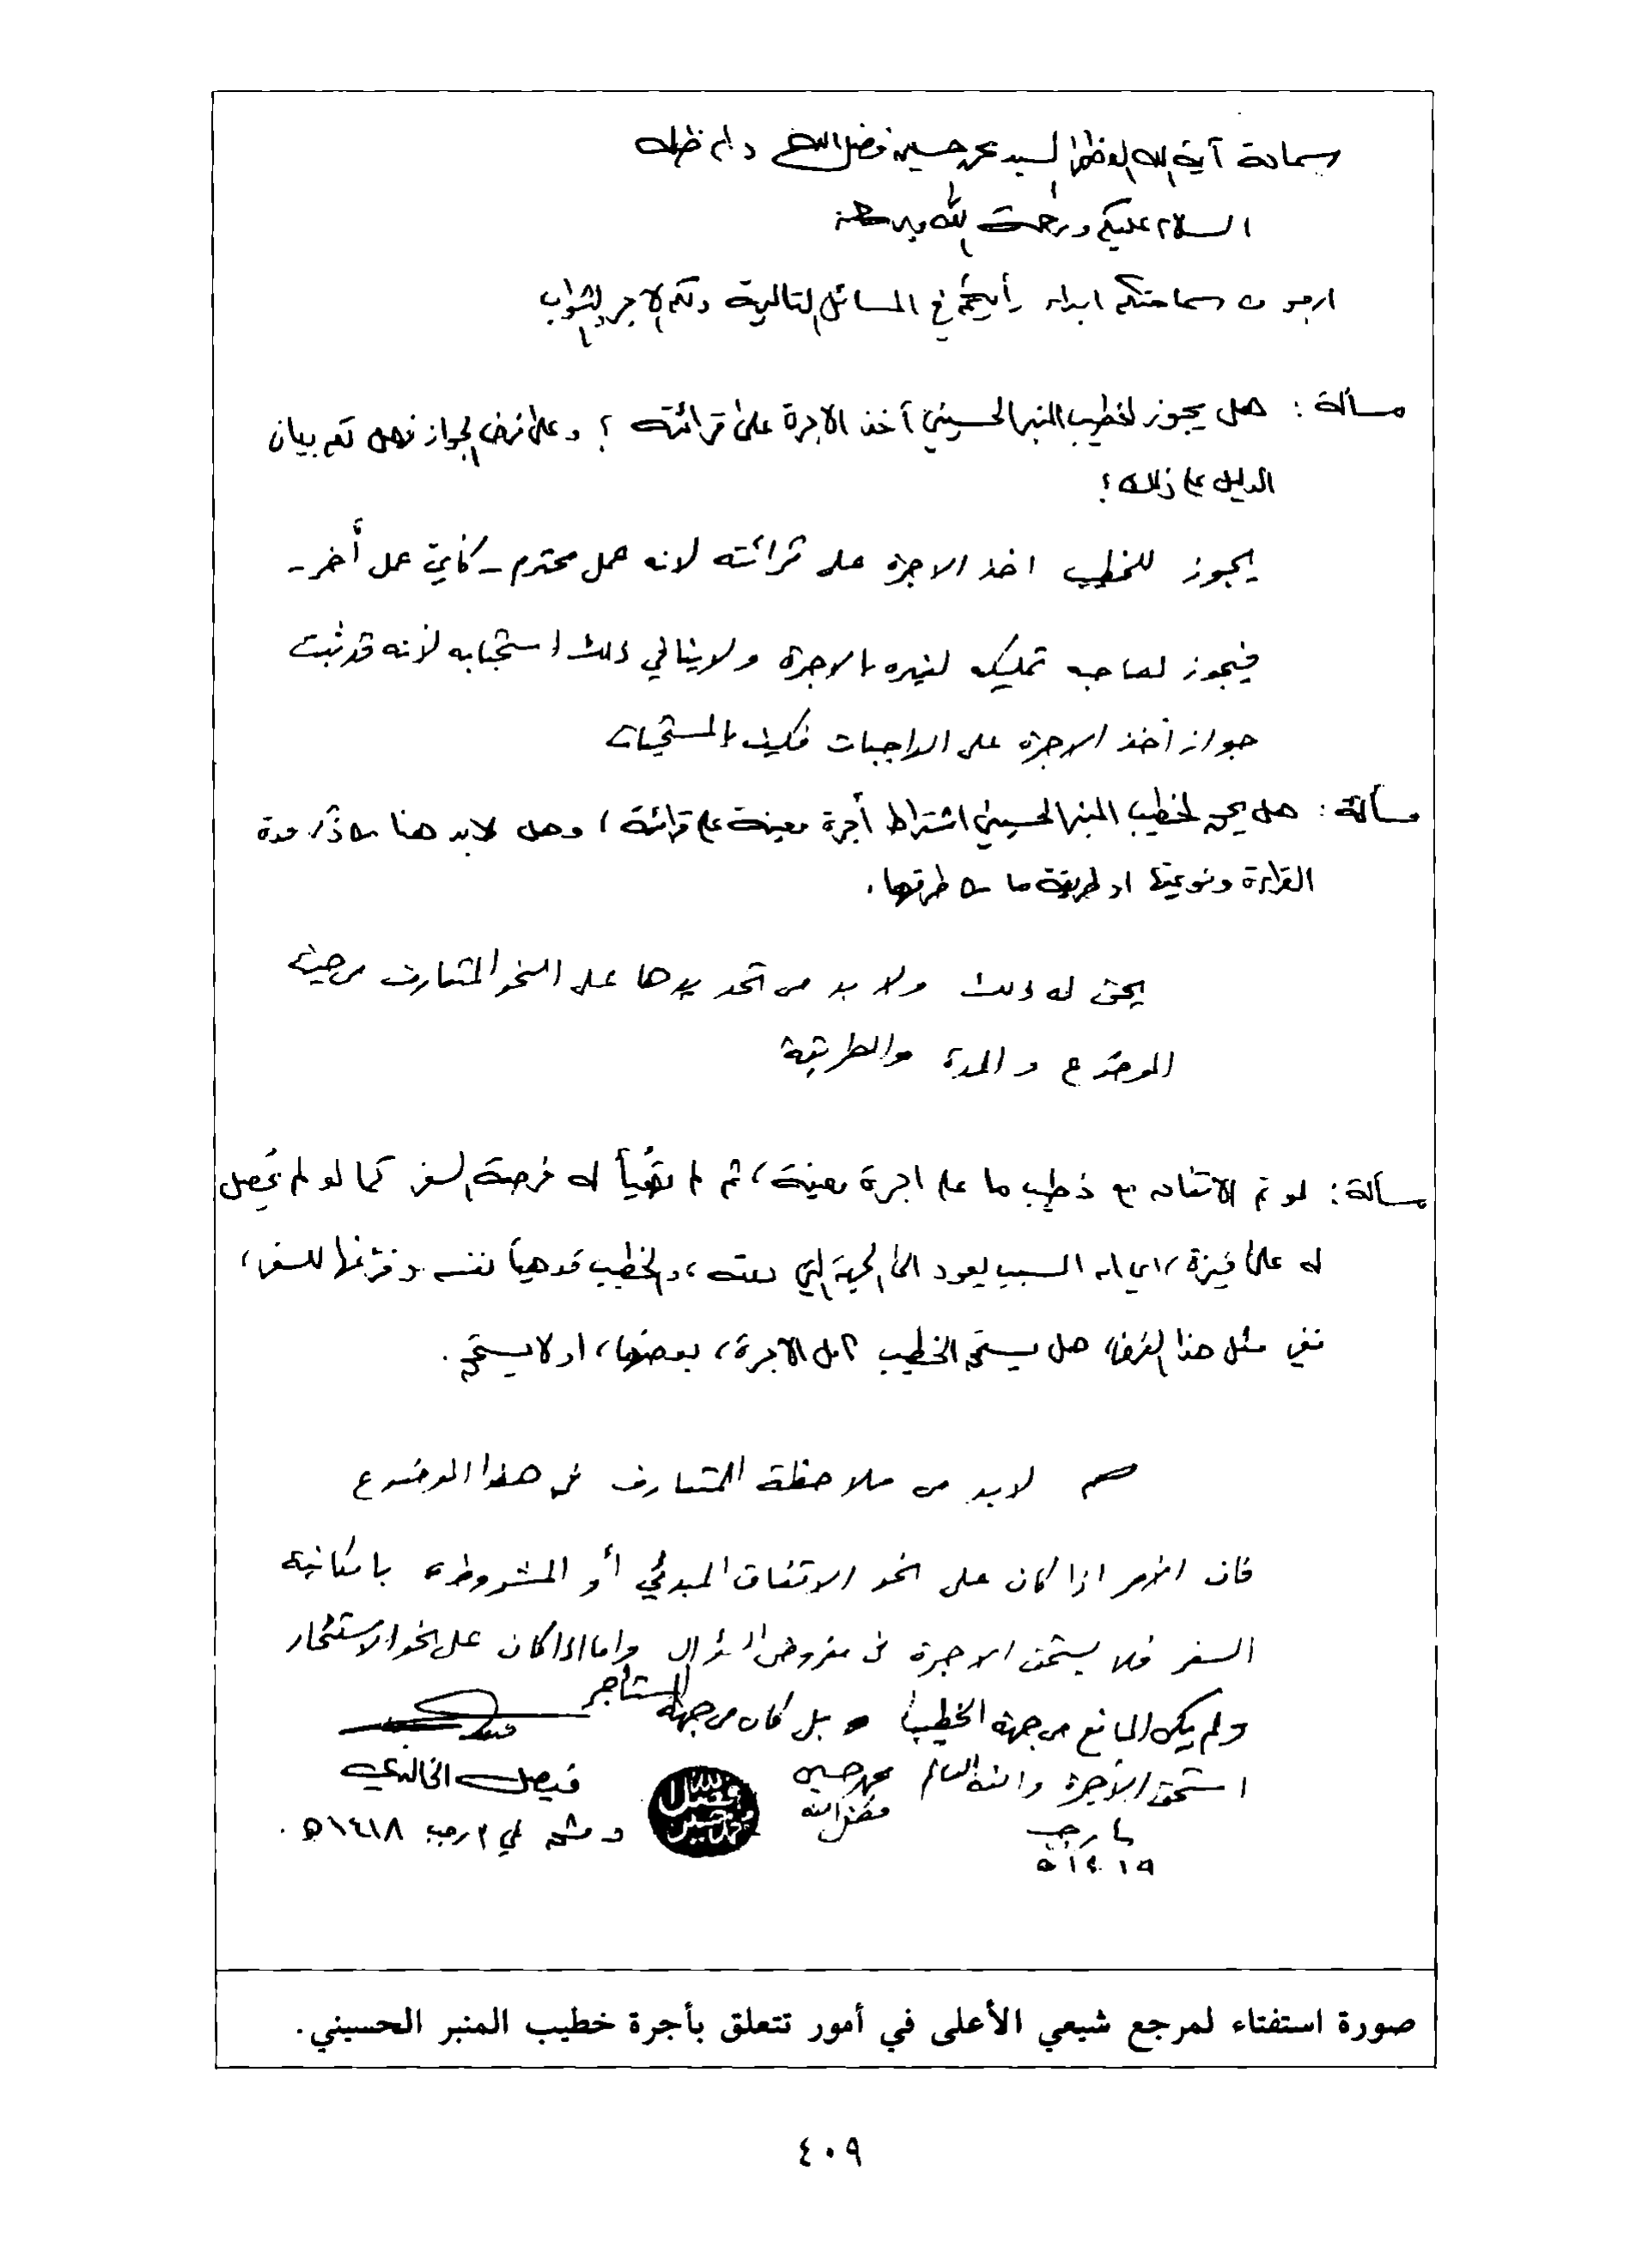 سماحة آية الله العظمى السيد محمد حسين فضل الله دام ظله
السلام عليكم ورحمة الله وبركاته
ارجو من سماحتكم ابداء رأيكم في المسائل التالية ولكم الاجر والثواب
مسألة: هل يجوز لخطيب المنبر الحسيني أخذ الاجرة على قرائته؟ وعلى فرض الجواز فهل لكم بيان
الدليل على ذلك؟
يجوز للخطيب اخذ الاجرة على قرائته لانه عمل محترم - كأيّ عمل أخر -
فيجوز لصاحبه تمليكه لغيره بالاجرة ولا ينافي ذلك استحبابه لأنه قد ثبت
جواز أخذ الاجرة على الواجبات فكيف بالمستحبات
مسألة: هل يحق لخطيب المنبر الحسيني اشتراط أجرة معينة على قرائته، وهل لابد هنا من ذكر مدة
القراءة ونوعيتها او طريقة ما من طرقها.
يحق له ذلك ولا بد من تحديدها على النحو المتعارف من حيث
الموضوع والمدة والطريقة
مسألة: لو تم الاتفاق مع خطيب ما على اجرة معينة، ثم لم تتهيأ له فرصة السفر كما لو لم يحصل
له على فيزة، اي ان السبب يعود الى الجهة التي دعته، والخطيب قد هيأ نفسه وفرّغها للسفر،
ففي مثل هذا الفرض هل يستحق الخطيب كامل الاجرة، بعضها، او لا يستحق.
لابد من ملاحظة المتعارف في هذا الموضوع
فان الأمر اذا كان على نحو الاتفاق المبدئي أو المشروط بامكانية
السفر فلا يستحق الاجرة في مفروض السؤال واما اذا كان على نحو الاستئجار
ولم يكن المانع من جهة الخطيب بل كان من جهة المستأجر
استحق الأجرة والله العالم محمد حسين فضل الله
فيصل الخالدي
دمشق في ٢ رجب ١٤١٨ هـ.
رجب
١٤١٩ هـ
صورة استفتاء لمرجع شيعي الأعلى في أمور تتعلق بأجرة خطيب المنبر الحسيني.
٤٠٩